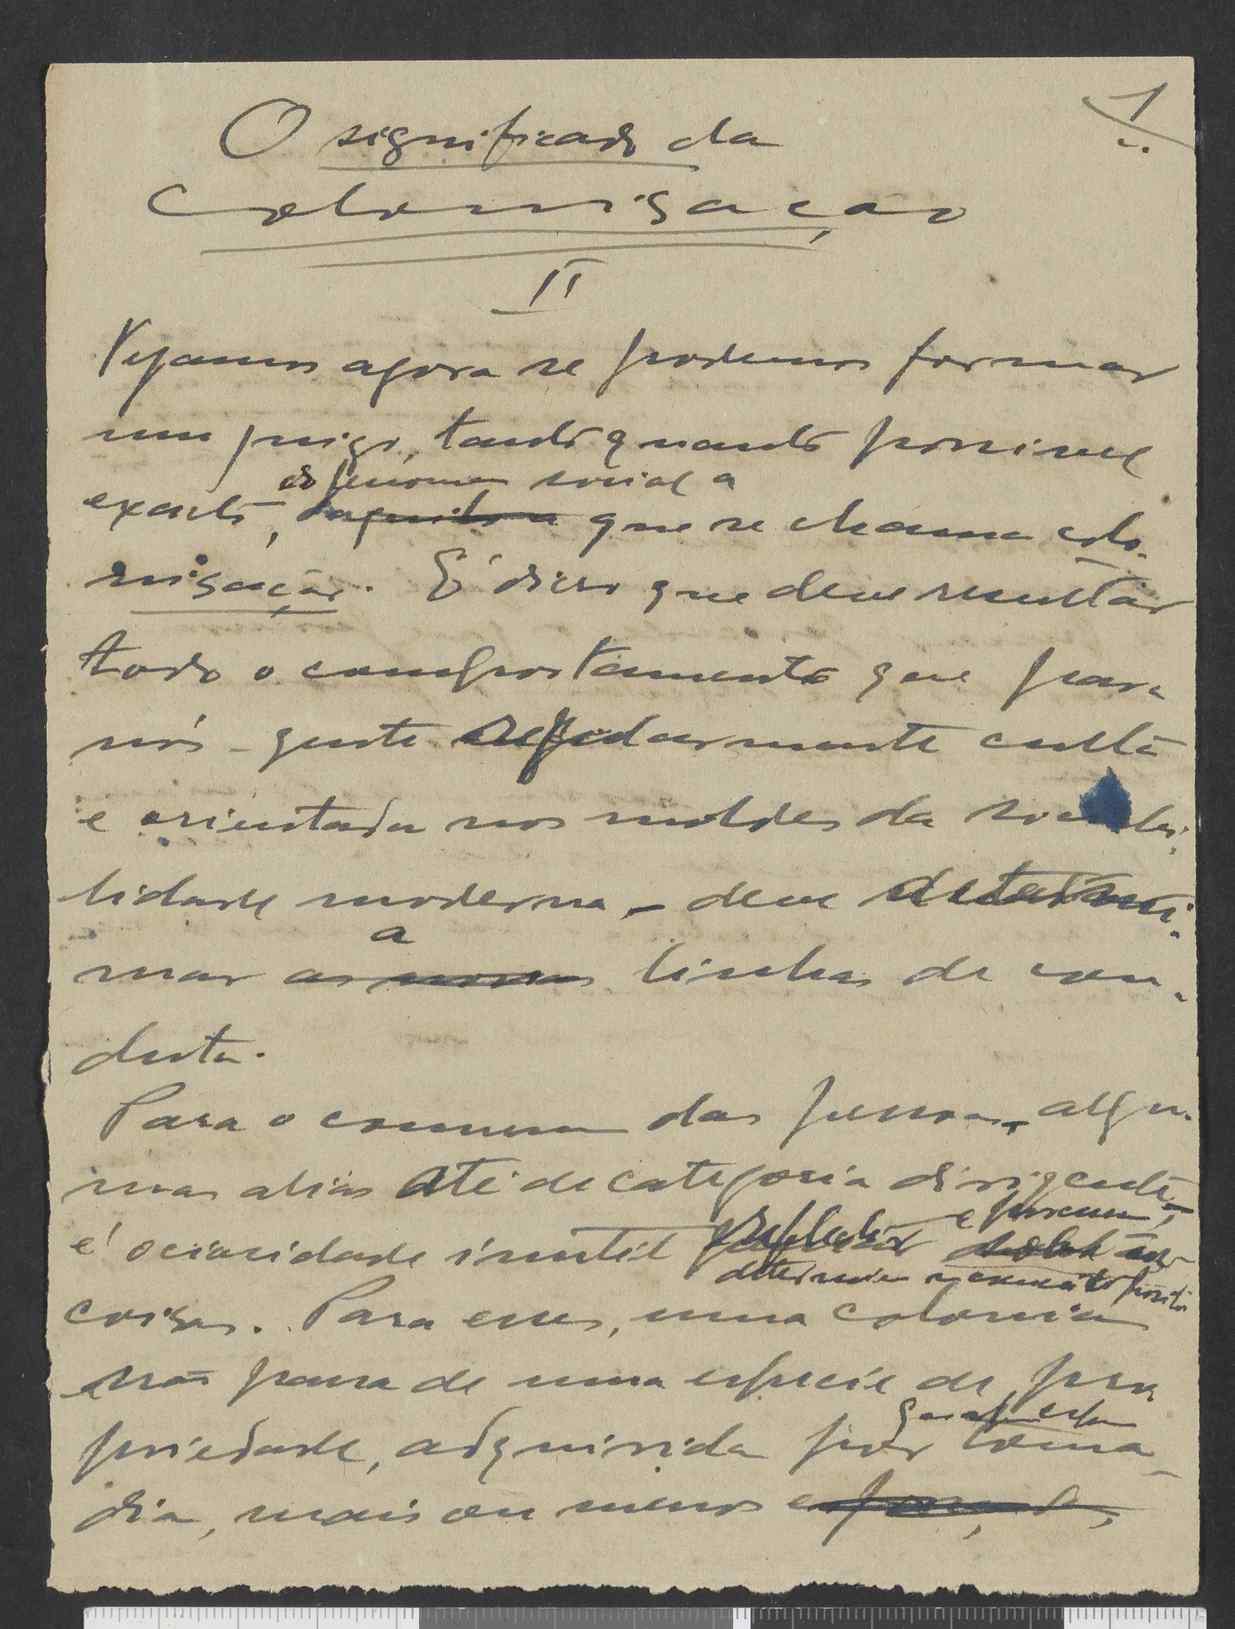 1
O significado da
Colonisação
II
Vejamos agora se podemos formar
um juizo, tanto quanto possivel
do fenomeno social a
exacto, daquilo a que se chama colo-
nisação. É disso que deve resultar
todo o comportamento que para
nós - gente regularmente culta
e orientada nos moldes da
lidade moderna - deve determi-
a
nar as novas linhas de con-
duta.
Para o comum das pessoas, algu-
mas aliás até de categoria dirigente,
é ociosidade inutil
coisas. Para esses, uma colonia
não passa de uma especie de pro
priedade, adquirida por toma-
dia, mais ou menos